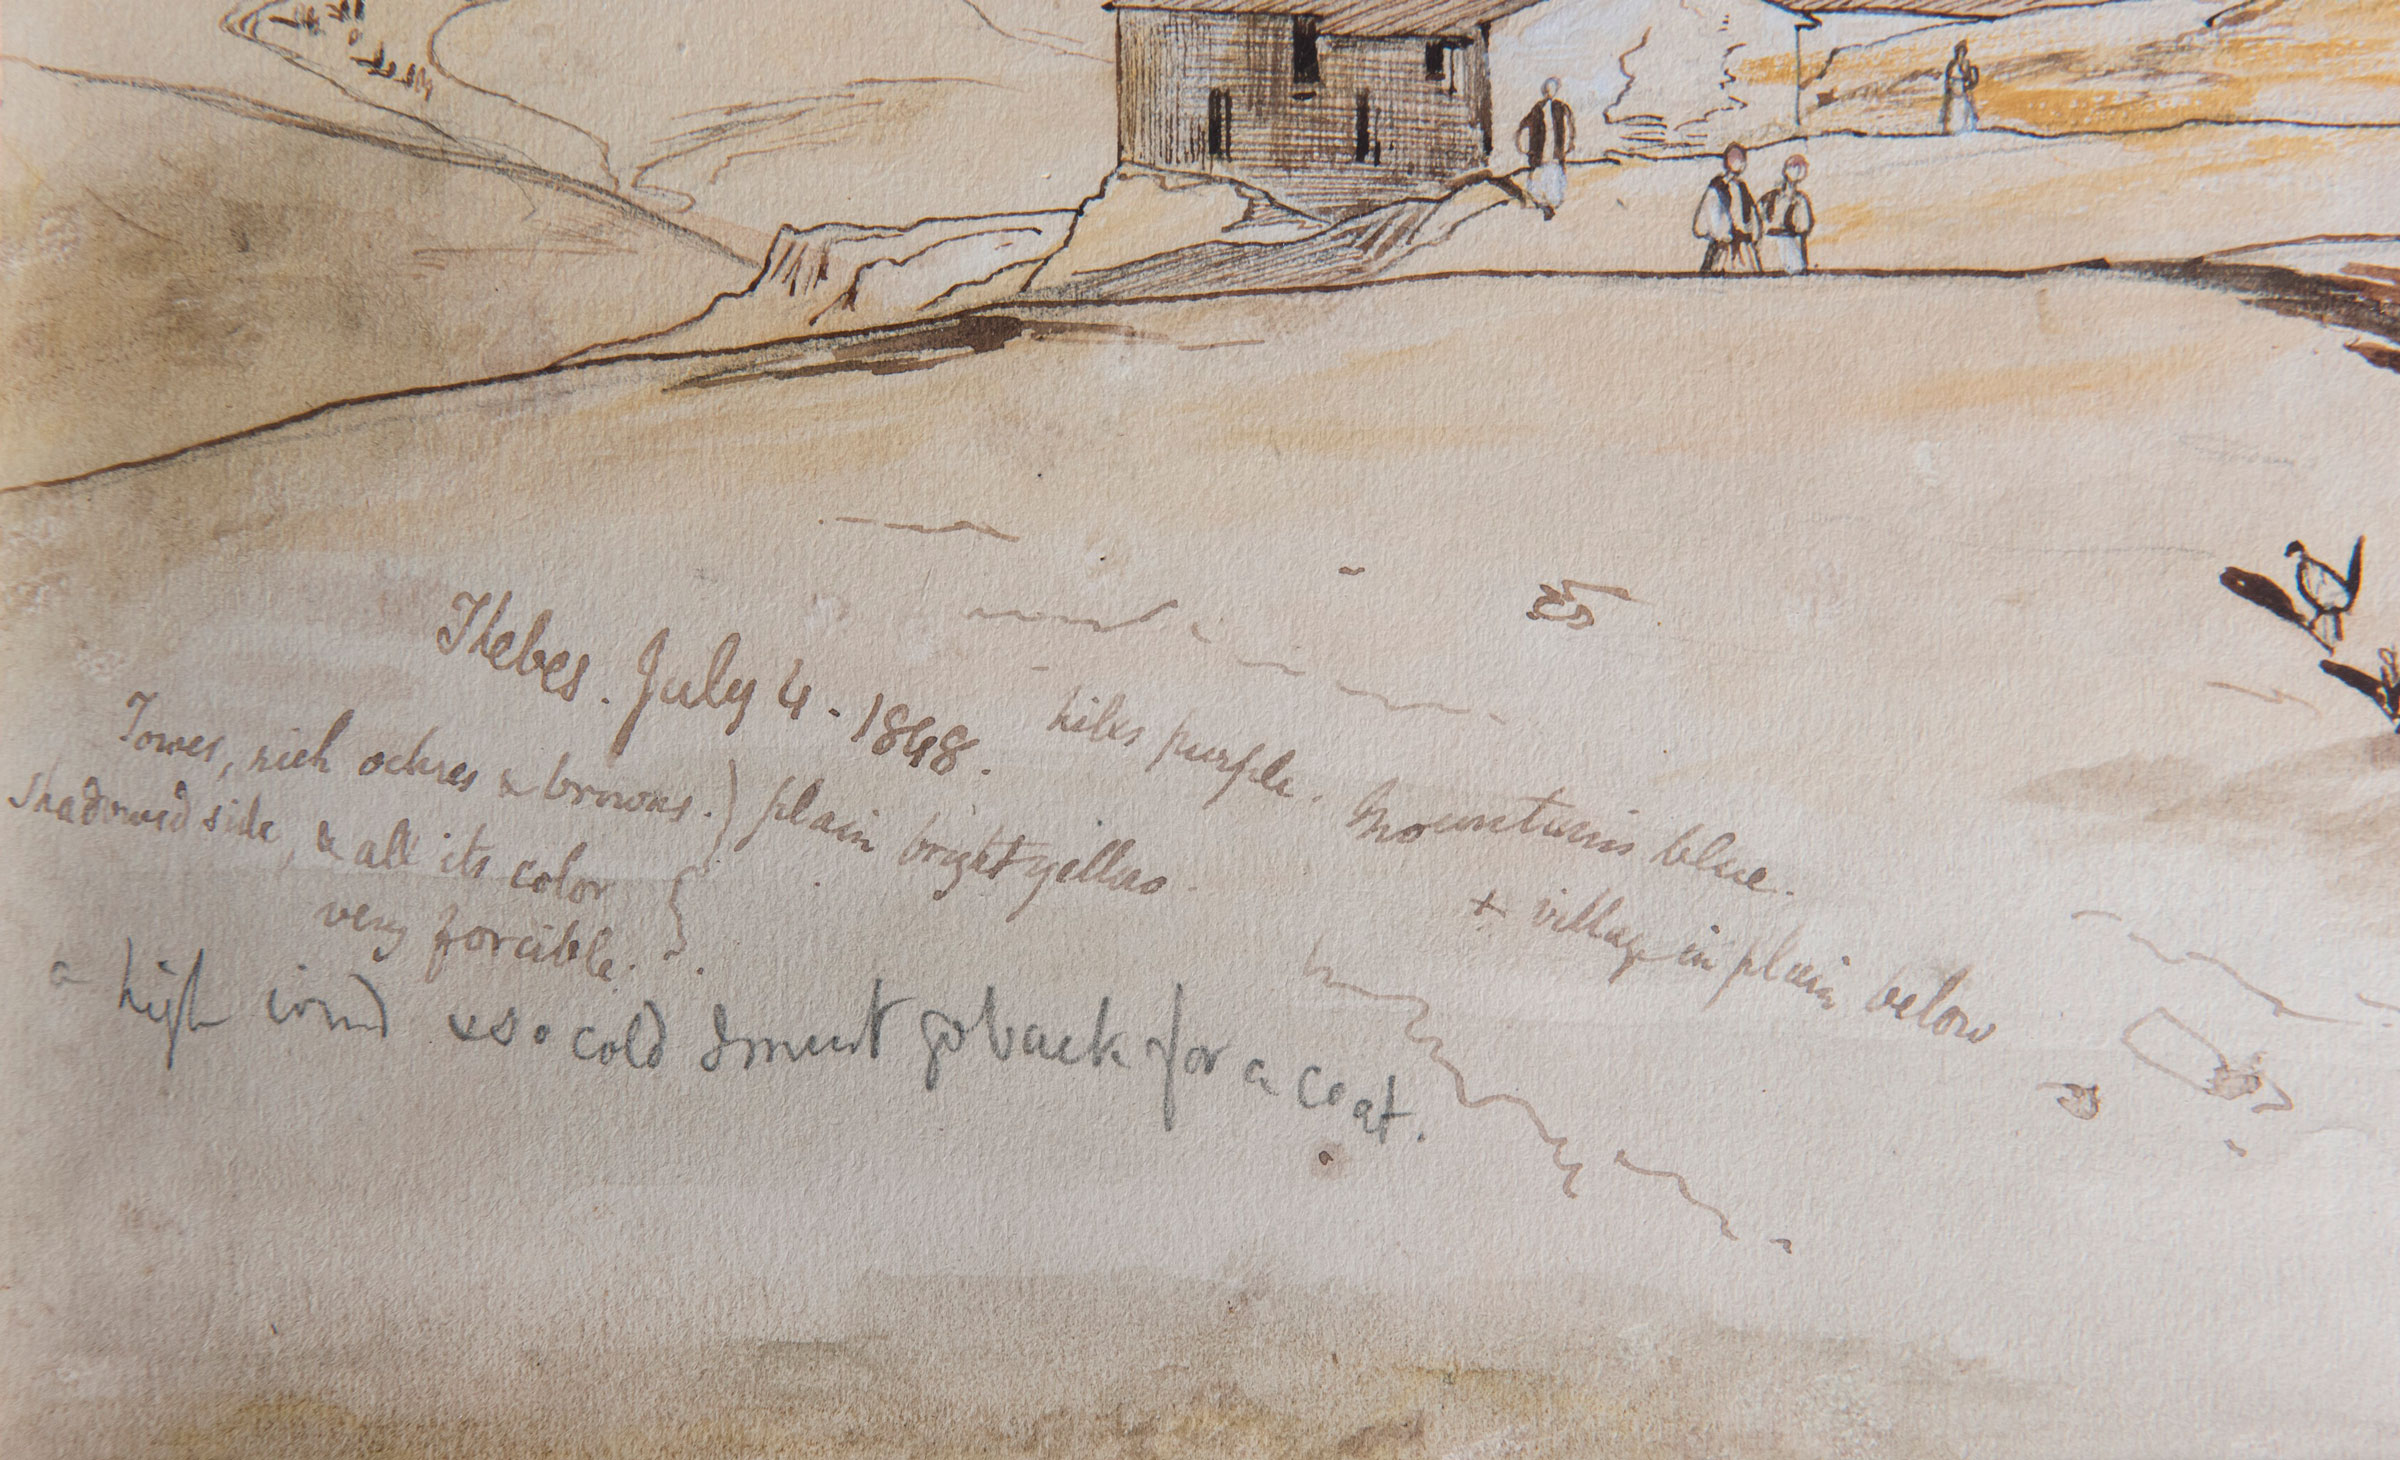 Thebes. July 4. 1848.
hills purple. Mountains blue.
Tower, rich ochres & browns.) plain bright yellow.
+ village in plain below
shadowed side, & all its color
very forcible.
a high wind & so cold I must go back for a coat.